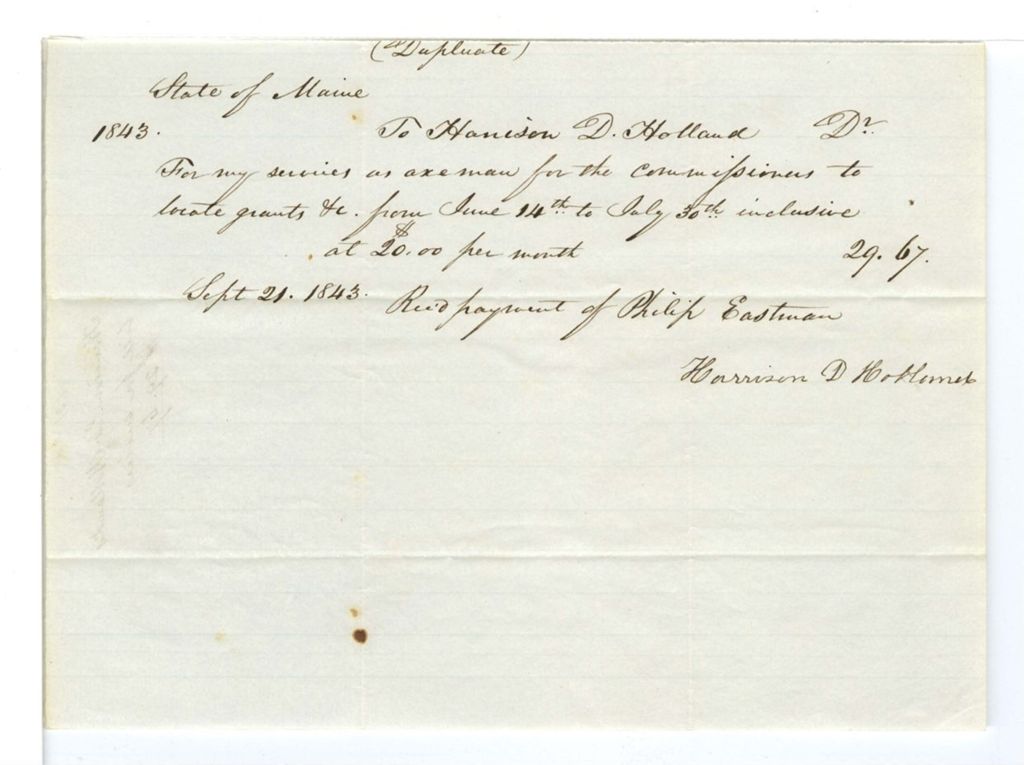 (Duplicate)
State of Maine
1843. To Harrison D. Holland Dr.
For my services as axeman for the commissioners to
locate grants &c. from June 14th to July 30th inclusive
at $20.00 per month 29.67.
Sept 21. 1843. Recd payment of Philip Eastman
Harrison D